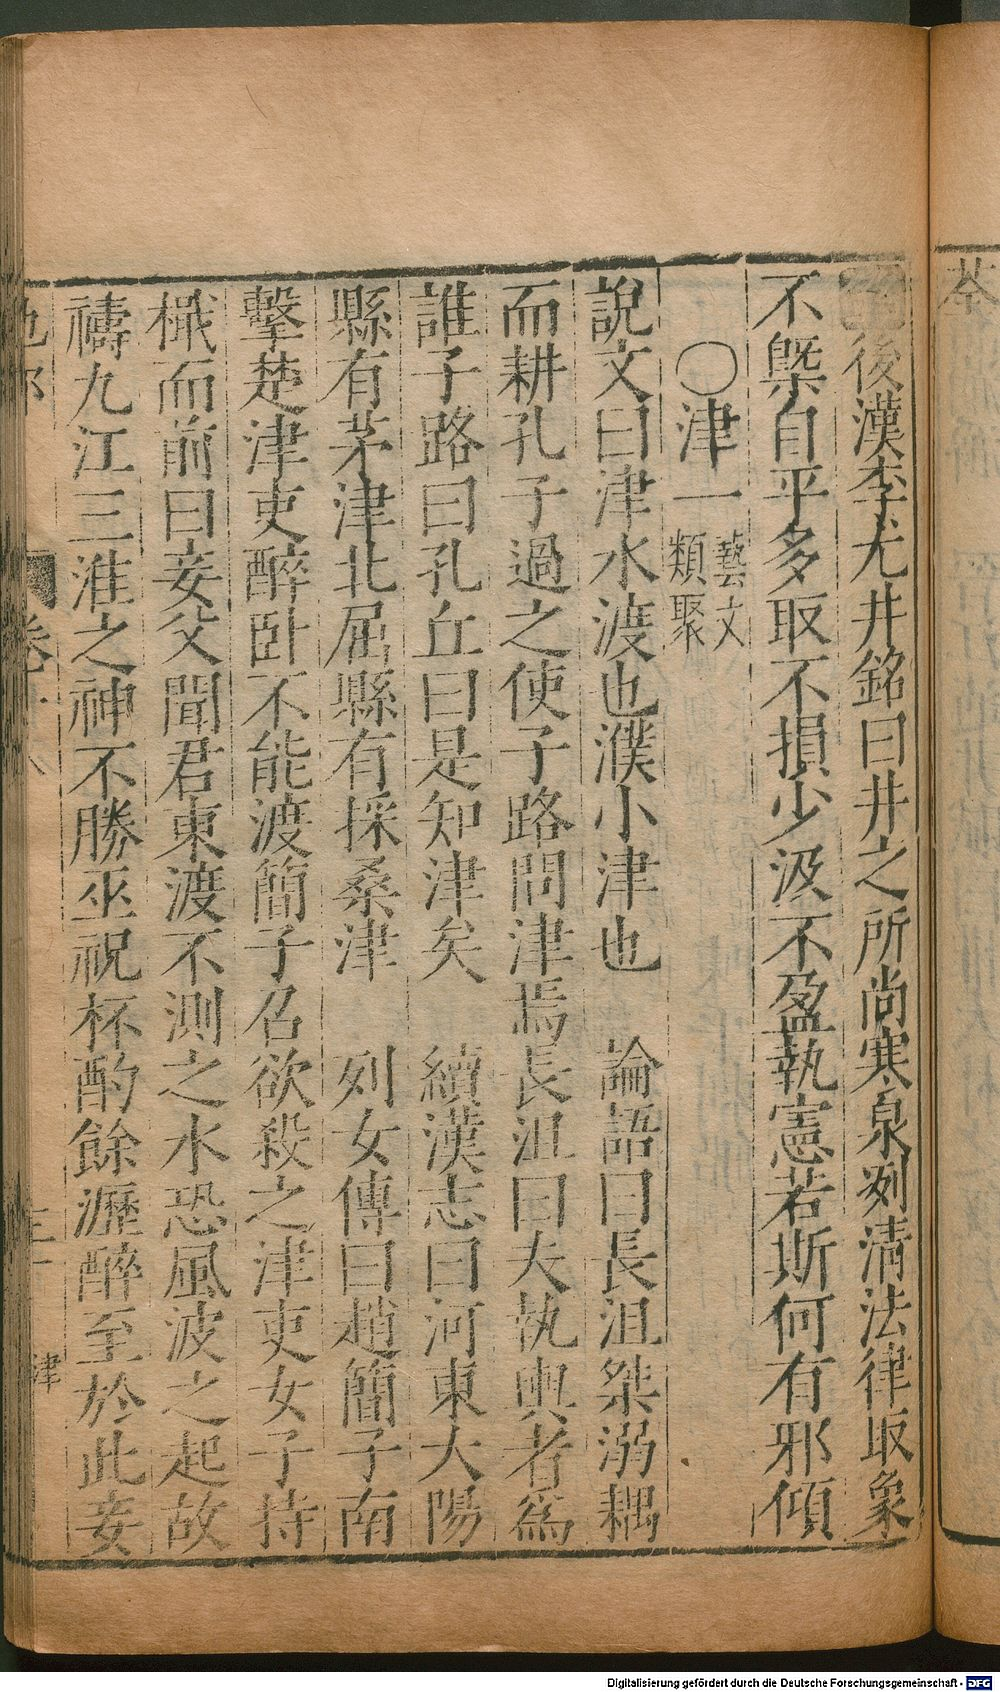 後漢李尤井銘曰井之所尚寒泉冽清法律取象
不槩自平多取不損少汲不盈執憲若斯何有邪傾
○津一藝文類聚
說文曰津水渡也濮小津也　論語曰長沮桀溺耦
而耕孔子過之使子路問津焉長沮曰夫執輿者為
誰子路曰孔丘曰是知津矣　續漢志曰河東大陽
縣有茅津北屈縣有採桑津　列女傳曰趙簡子南
擊楚津吏醉臥不能渡簡子召欲殺之津吏女子持
檝而前曰妾父聞君東渡不測之水恐風波之起故
禱九江三淮之神不勝巫祝杯酌餘瀝醉至於此妾
卷十八
三十一
津
Digitalisierung gefördert durch die Deutsche Forschungsgemeinschaft - DFG